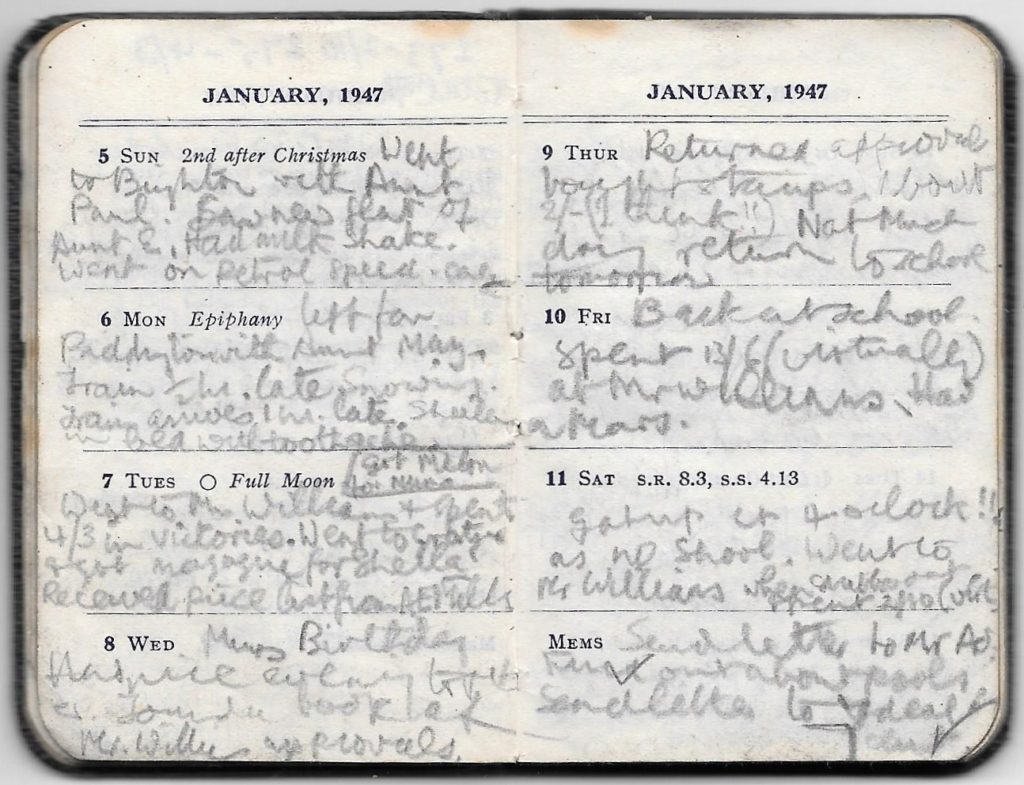 JANUARY, 1947
5 SUN 2nd after Christmas Went
to Brighton with Aunt
Paul. Saw new flat of
Aunt E. Had milk shake.
Went on petrol speed
6 MON Epiphany left for
Paddington with Aunt May.
Train 1 hr. late Snowing.
Train arrives 1 hr. late. Sheila
in bed with toothache
7 TUES Full Moon got
for Mums
Went to Mr Williams + spent
4/3 in victories. Went to
+ got magazine for Sheila
Received from
8 WED Mums Birthday
Had nice
book
Mr. approvals.
JANUARY, 1947
9 THUR Returned approvals
bought stamps. About
2/- (I think!!) Not Much
doing return to school
tomorrow
10 FRI Back at school.
Spent 13/6 (virtually)
at Mr Williams. Had
a Mars.
11 SAT S.R. 8.3, S.S. 4.13
got up at 4 oclock!!
as no School. Went to
Mr Williams where
spent 2/10
MEMS Send letter to Mr
Find out about pools
Send letter to